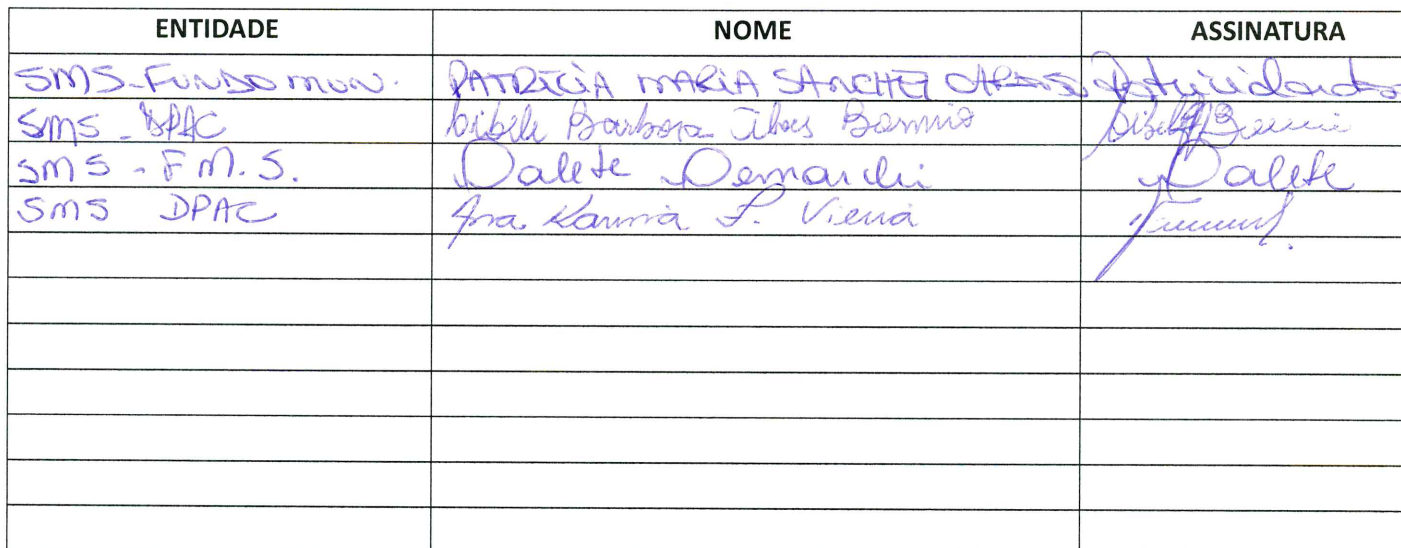 ENTIDADE NOME ASSINATURA
SMS-FUNDO MUN. PATRICIA MARIA SANCHEZ
SMS - DPAC Cibele Barbosa
SMS - F.M.S. Dalete Demarchi Dalete
SMS DPAC Ana Karina F. Vieira